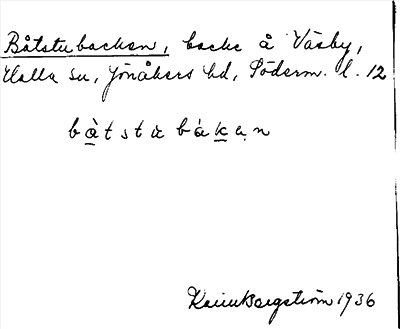 Båtstubacken, backe å Väsby,
Halla sn, Jönåkers hd, Söderm. l. 12
bàtstubákan
Karin Bergström 1936